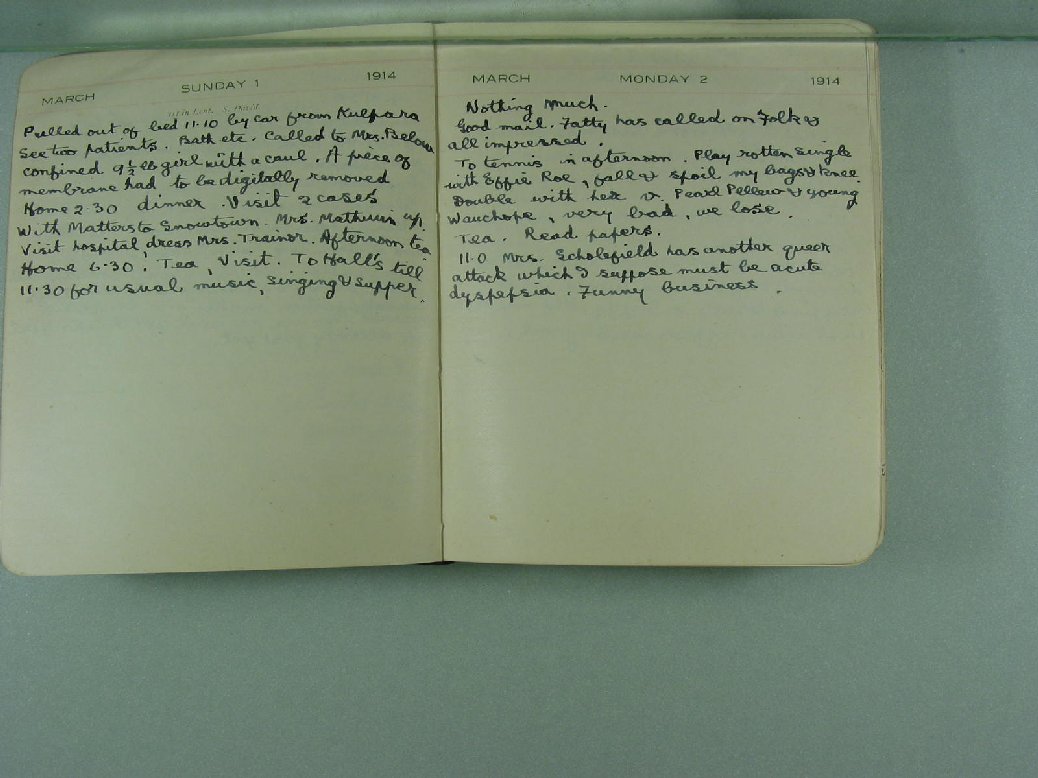 MARCH SUNDAY 1 1914
Pulled out of bed 11.10 by car from Kulpara
See two patients. Bath etc. Called to Mrs. Below
confined 9½ lb girl with a caul. A piece of
membrane had to be digitally removed
Home 2.30 dinner. Visit 2 cases
With Matters to Snowtown. Mrs.
Visit hospital, dress Mrs. Trainor. Afternoon tea
Home 6.30. Tea, Visit. To Hall's till
11.30 for usual music, singing & supper.
MARCH MONDAY 2 1914
Nothing much.
Good mail. Fatty has called on Folk &
all impressed.
To tennis in afternoon. Play rotten single
with Effie Roe, fall & spoil my bags & knee.
Double with her v. Pearl Pellew & young
Wauchope, very bad, we lose.
Tea. Read papers.
11.0 Mrs. Scholefield has another queer
attack which I suppose must be acute
dyspepsia. Funny business.